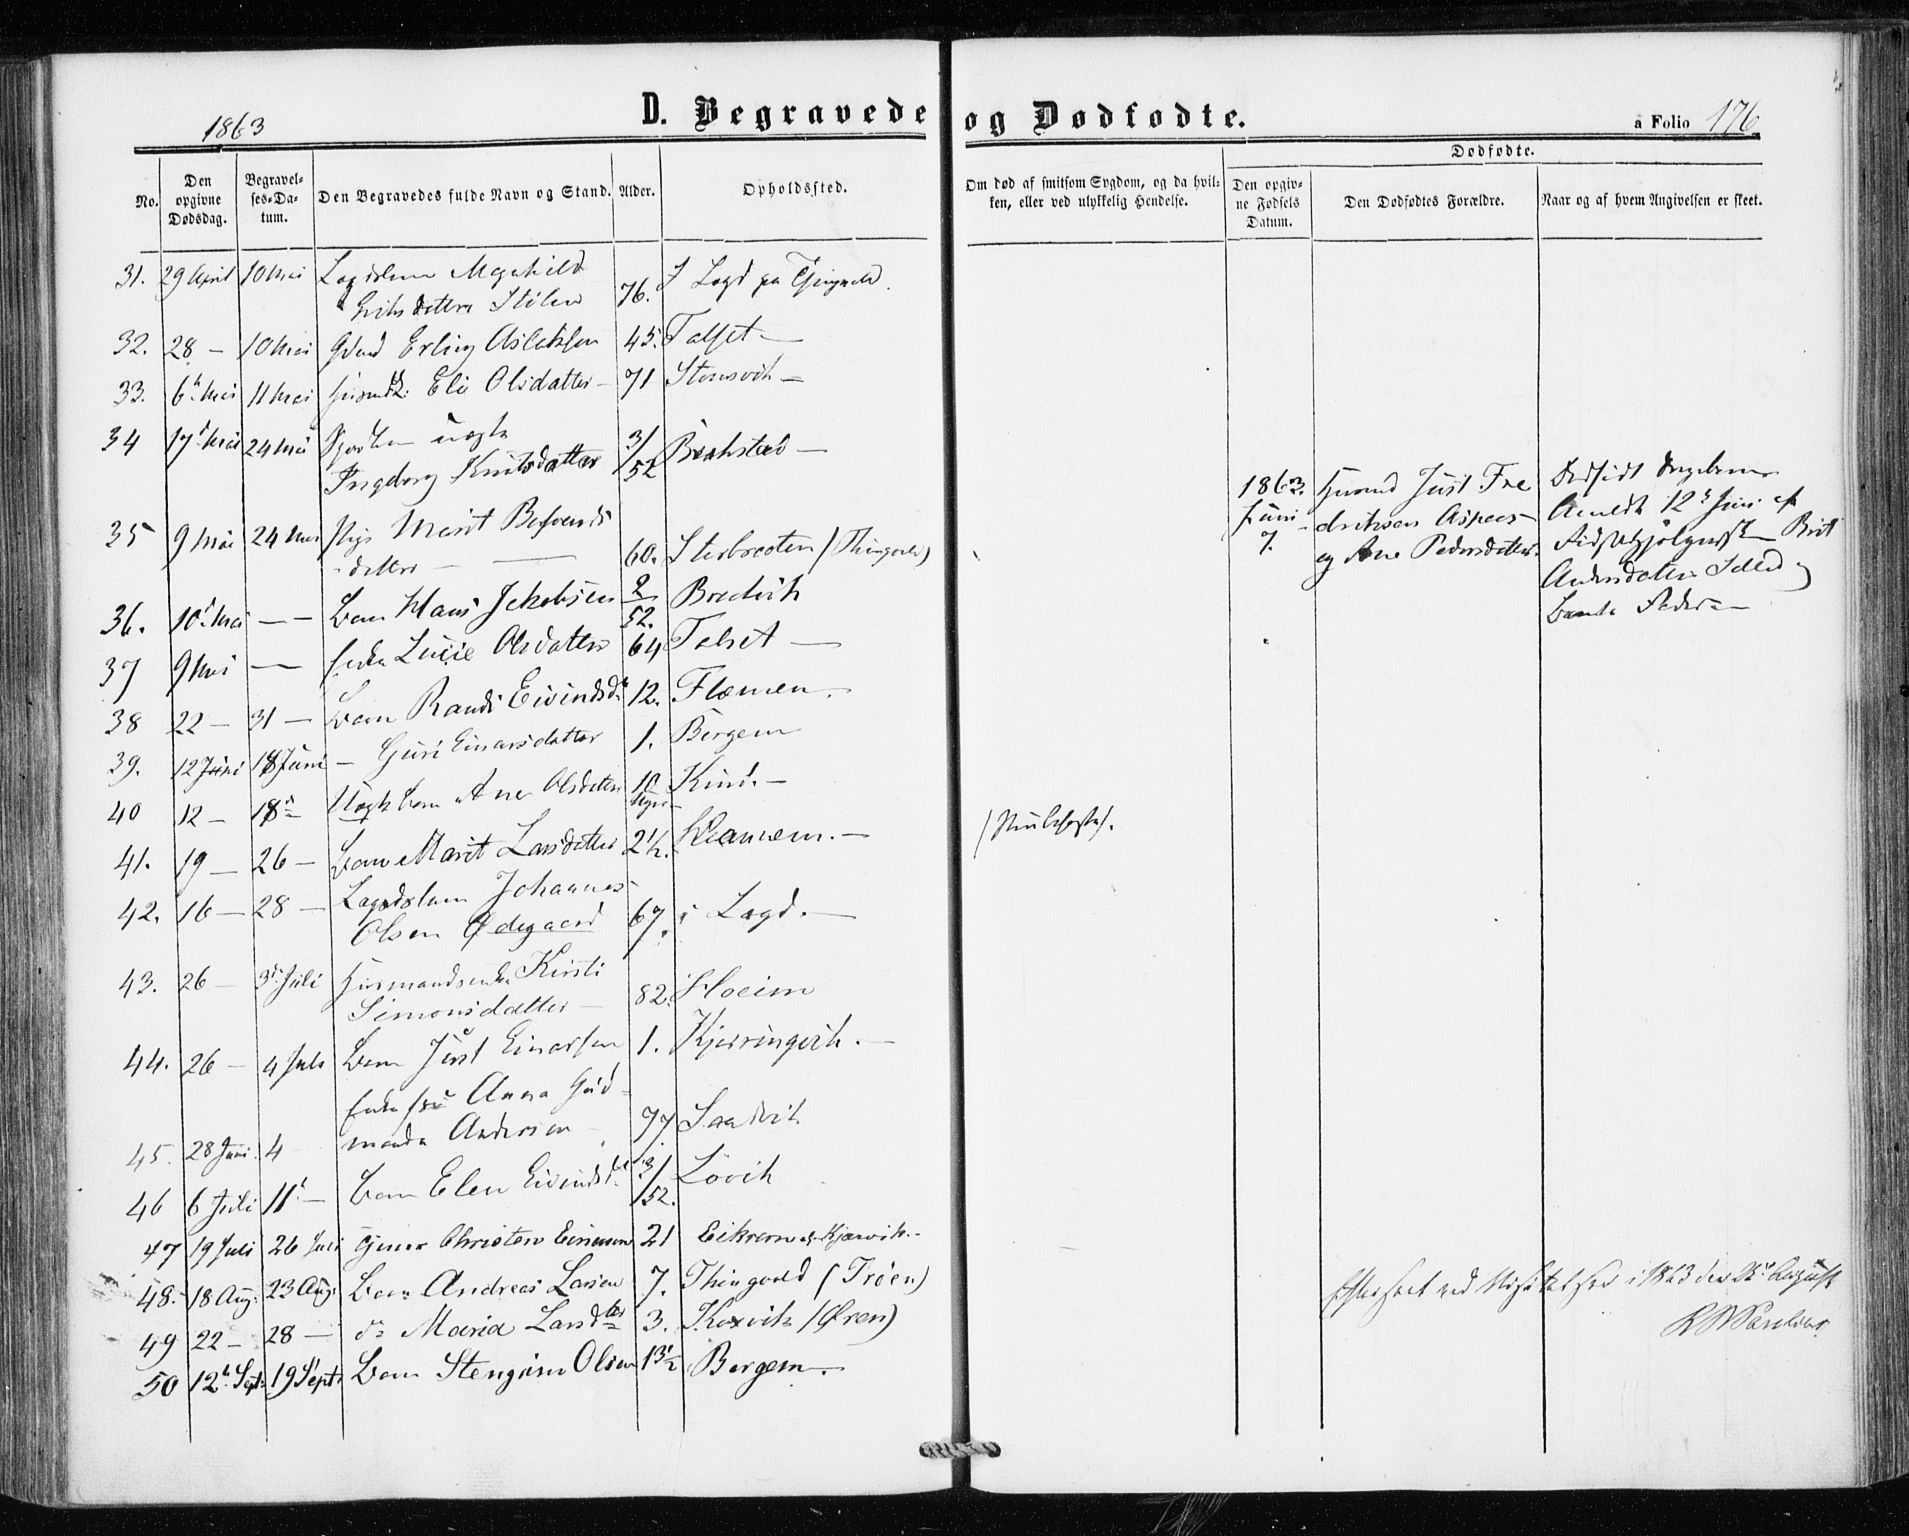 1863
D. Begravede og Dødfødte.
a Folio 176
Dødfødte.
No.
Den opgivne Dødsdag.
Begravelses-Datum.
Den Begravedes fulde Navn og Stand.
Alder.
Opholdssted.
Om død af smitsom Sygdom, og da hvilken, eller ved ulykkelig Hendelse.
Den opgivne Fødsels Datum.
Den Dødfødtes Forældre.
Naar og af hvem Angivelsen er skeet.
31. 29 April 10 Mai Lægdslem Magnhild
Eriksdatter Stölen 76. I Lægd paa Thingvold.
32. 28 — 10 Mai Gbmd Erling Aslaksen 45. Talset —
33. 6te Mai 11 Mai Eli Olsdatter — 71 Stensvik —
34 17de Mai 24 Mai uægte
Ingeborg Knutsdatter 3/52 Brakstad —
35 9 Mai 24 Mai Pige Marit
datter — 60. (Thingvold)
36. 10de Mai — — Barn Hans Jakobsen 2/52. Bredvik
37 9 Mai — Enke Lucie Olsdatter 64 Talset —
38 22 — 31 — Barn Randi Eivindsdr 12. Flemmen.
39. 12 Juni 18 Juni — Guri Einarsdatter 1. Bergem
40 12 — 18de Uægte barn Ane Olsdatter 10 Uger Rimt. —
41. 19 — 26 — Barn Marit Larsdatter 2½. —
42. 16 — 28 — Lægdslem Johannes
Olsen Ødegaard 67. i Lægd. —
43. 26 — 3de Juli Husmandsenke Kirsti
Simonsdatter — 82. Hoeim
44. 26 — 4 Juli Barn Just Einarsen 1. Kjerringvik. —
Enkefru Anna Gud-
45. 28 Juni 4 manda Andersen — 77 Saadvik
46 6 Juli 11te — Barn Elen Eivindsdr 3/52. Lövik
47 19 Juli 26 Juli Christen 21 Eikrem Kjørsvik.
48. 18 Aug. 23 Aug. Barn Andreas Larsen 7. Thingvold (Tröen)
49 22 — 28 — do Maria Larsdter 3. Koxvik (Øren)
50 12te Sept. 19 Sept. Barn Stengrim Olsen 13½ Bergem —.
1863. Juni 7.
Husmd Just Fre
driksen Aspaas
og Ane Pedersdatter
Anmeldt 12te Juni af
Brit
Andersdatter og
Efterseet ved Visitatsen i 1863 den 25de August